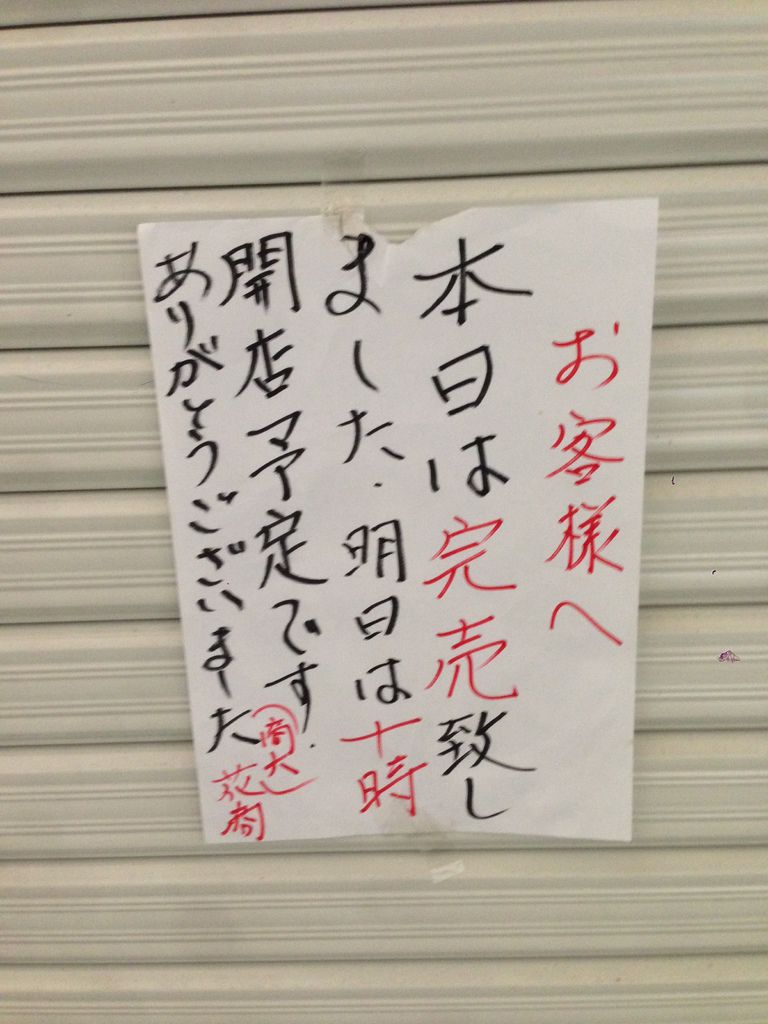 お客様へ
本日は完売致し
ました.明日は十時
開店予定です.
ありがとうございました
花商